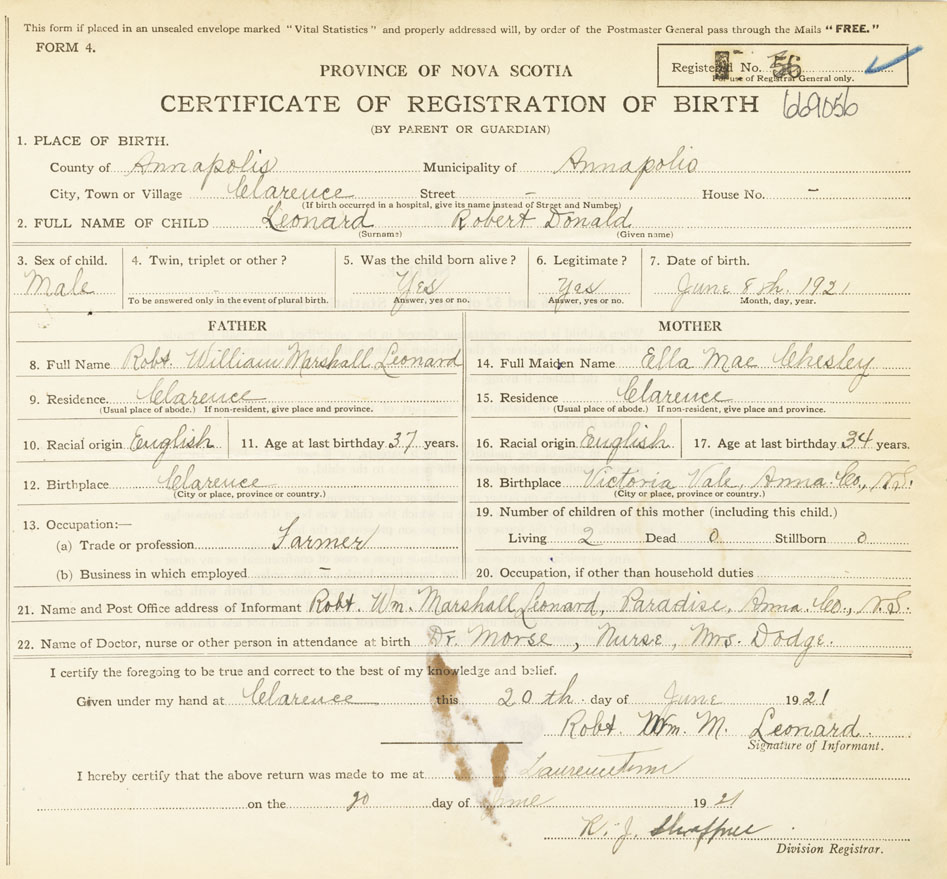 This form if placed in an unsealed envelope marked "Vital Statistics" and properly addressed will, by order of the Postmaster General pass through the Mails "FREE."
FORM 4.
Registered No. 56
For use of Registrar General only.
PROVINCE OF NOVA SCOTIA
CERTIFICATE OF REGISTRATION OF BIRTH 669056
(BY PARENT OR GUARDIAN)
1. PLACE OF BIRTH.
County of Annapolis Municipality of Annapolis
City, Town or Village Clarence Street – House No. –
(If birth occurred in a hospital, give its name instead of Street and Number)
2. FULL NAME OF CHILD Leonard Robert Donald
(Surname) (Given name)
3. Sex of child. 4. Twin, triplet or other? 5. Was the child born alive? 6. Legitimate? 7. Date of birth.
Male Yes Yes June 8th. 1921
To be answered only in the event of plural birth. Answer, yes or no. Answer, yes or no. Month, day, year.
FATHER MOTHER
8. Full Name Robt. William Marshall Leonard 14. Full Maiden Name Ella Mae Chesley
9. Residence Clarence 15. Residence Clarence
(Usual place of abode.) If non-resident, give place and province. (Usual place of abode.) If non-resident, give place and province.
10. Racial origin English 11. Age at last birthday 37 years. 16. Racial origin English 17. Age at last birthday 34 years.
12. Birthplace Clarence 18. Birthplace Victoria Vale, Anna. Co., N.S.
(City or place, province or country.) (City or place, province or country.)
13. Occupation:— 19. Number of children of this mother (including this child.)
(a) Trade or profession Farmer Living 2 Dead 0 Stillborn 0
(b) Business in which employed – 20. Occupation, if other than household duties
21. Name and Post Office address of Informant Robt. Wm. Marshall Leonard, Paradise, Anna. Co., N.S.
22. Name of Doctor, nurse or other person in attendance at birth Dr. Morse, Nurse, Mrs. Dodge.
I certify the foregoing to be true and correct to the best of my knowledge and belief.
Given under my hand at Clarence this 20th day of June 1921
Robt. Wm. M. Leonard
Signature of Informant.
I hereby certify that the above return was made to me at Lawrencetown
on the 20 day of June 1921
R. J. Shaffner
Division Registrar.